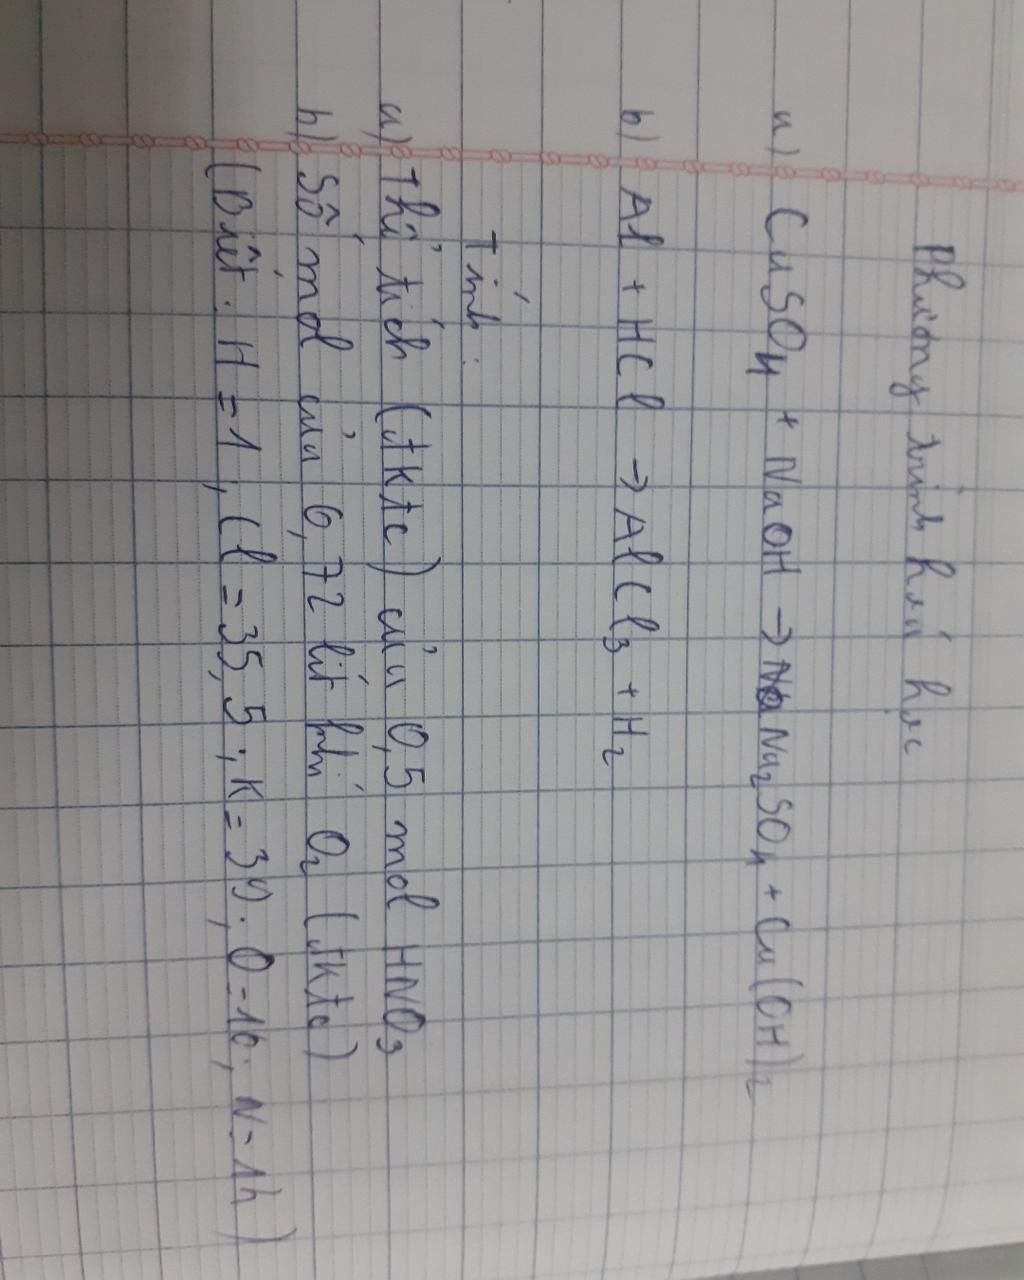 Phương trình hoá học
a) CuSO4 + NaOH → Na2SO4 + Cu(OH)2
b) Al + HCl → AlCl3 + H2
Tính :
a) Thể tích (đktc) của 0,5 mol HNO3
b) Số mol của 6,72 lít khí O2 (đktc)
(Biết : H = 1 , Cl = 35,5 ; K = 39 ; O = 16 ; N = 14)